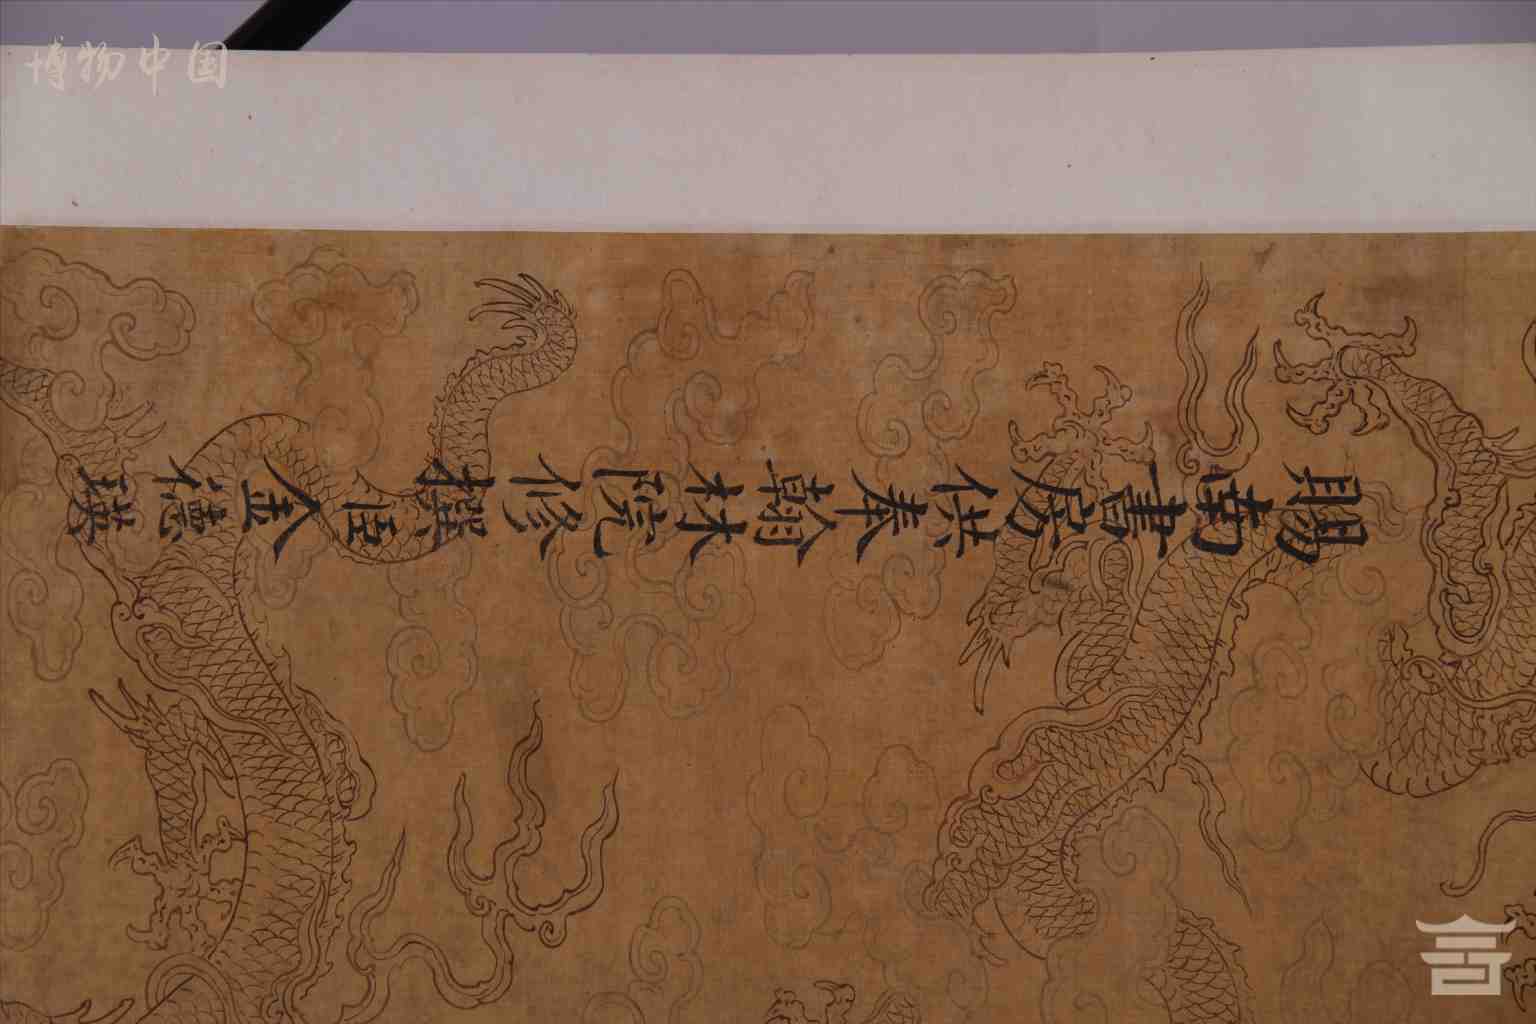 博物中国
賜南書房供奉翰林院修撰臣金德瑛